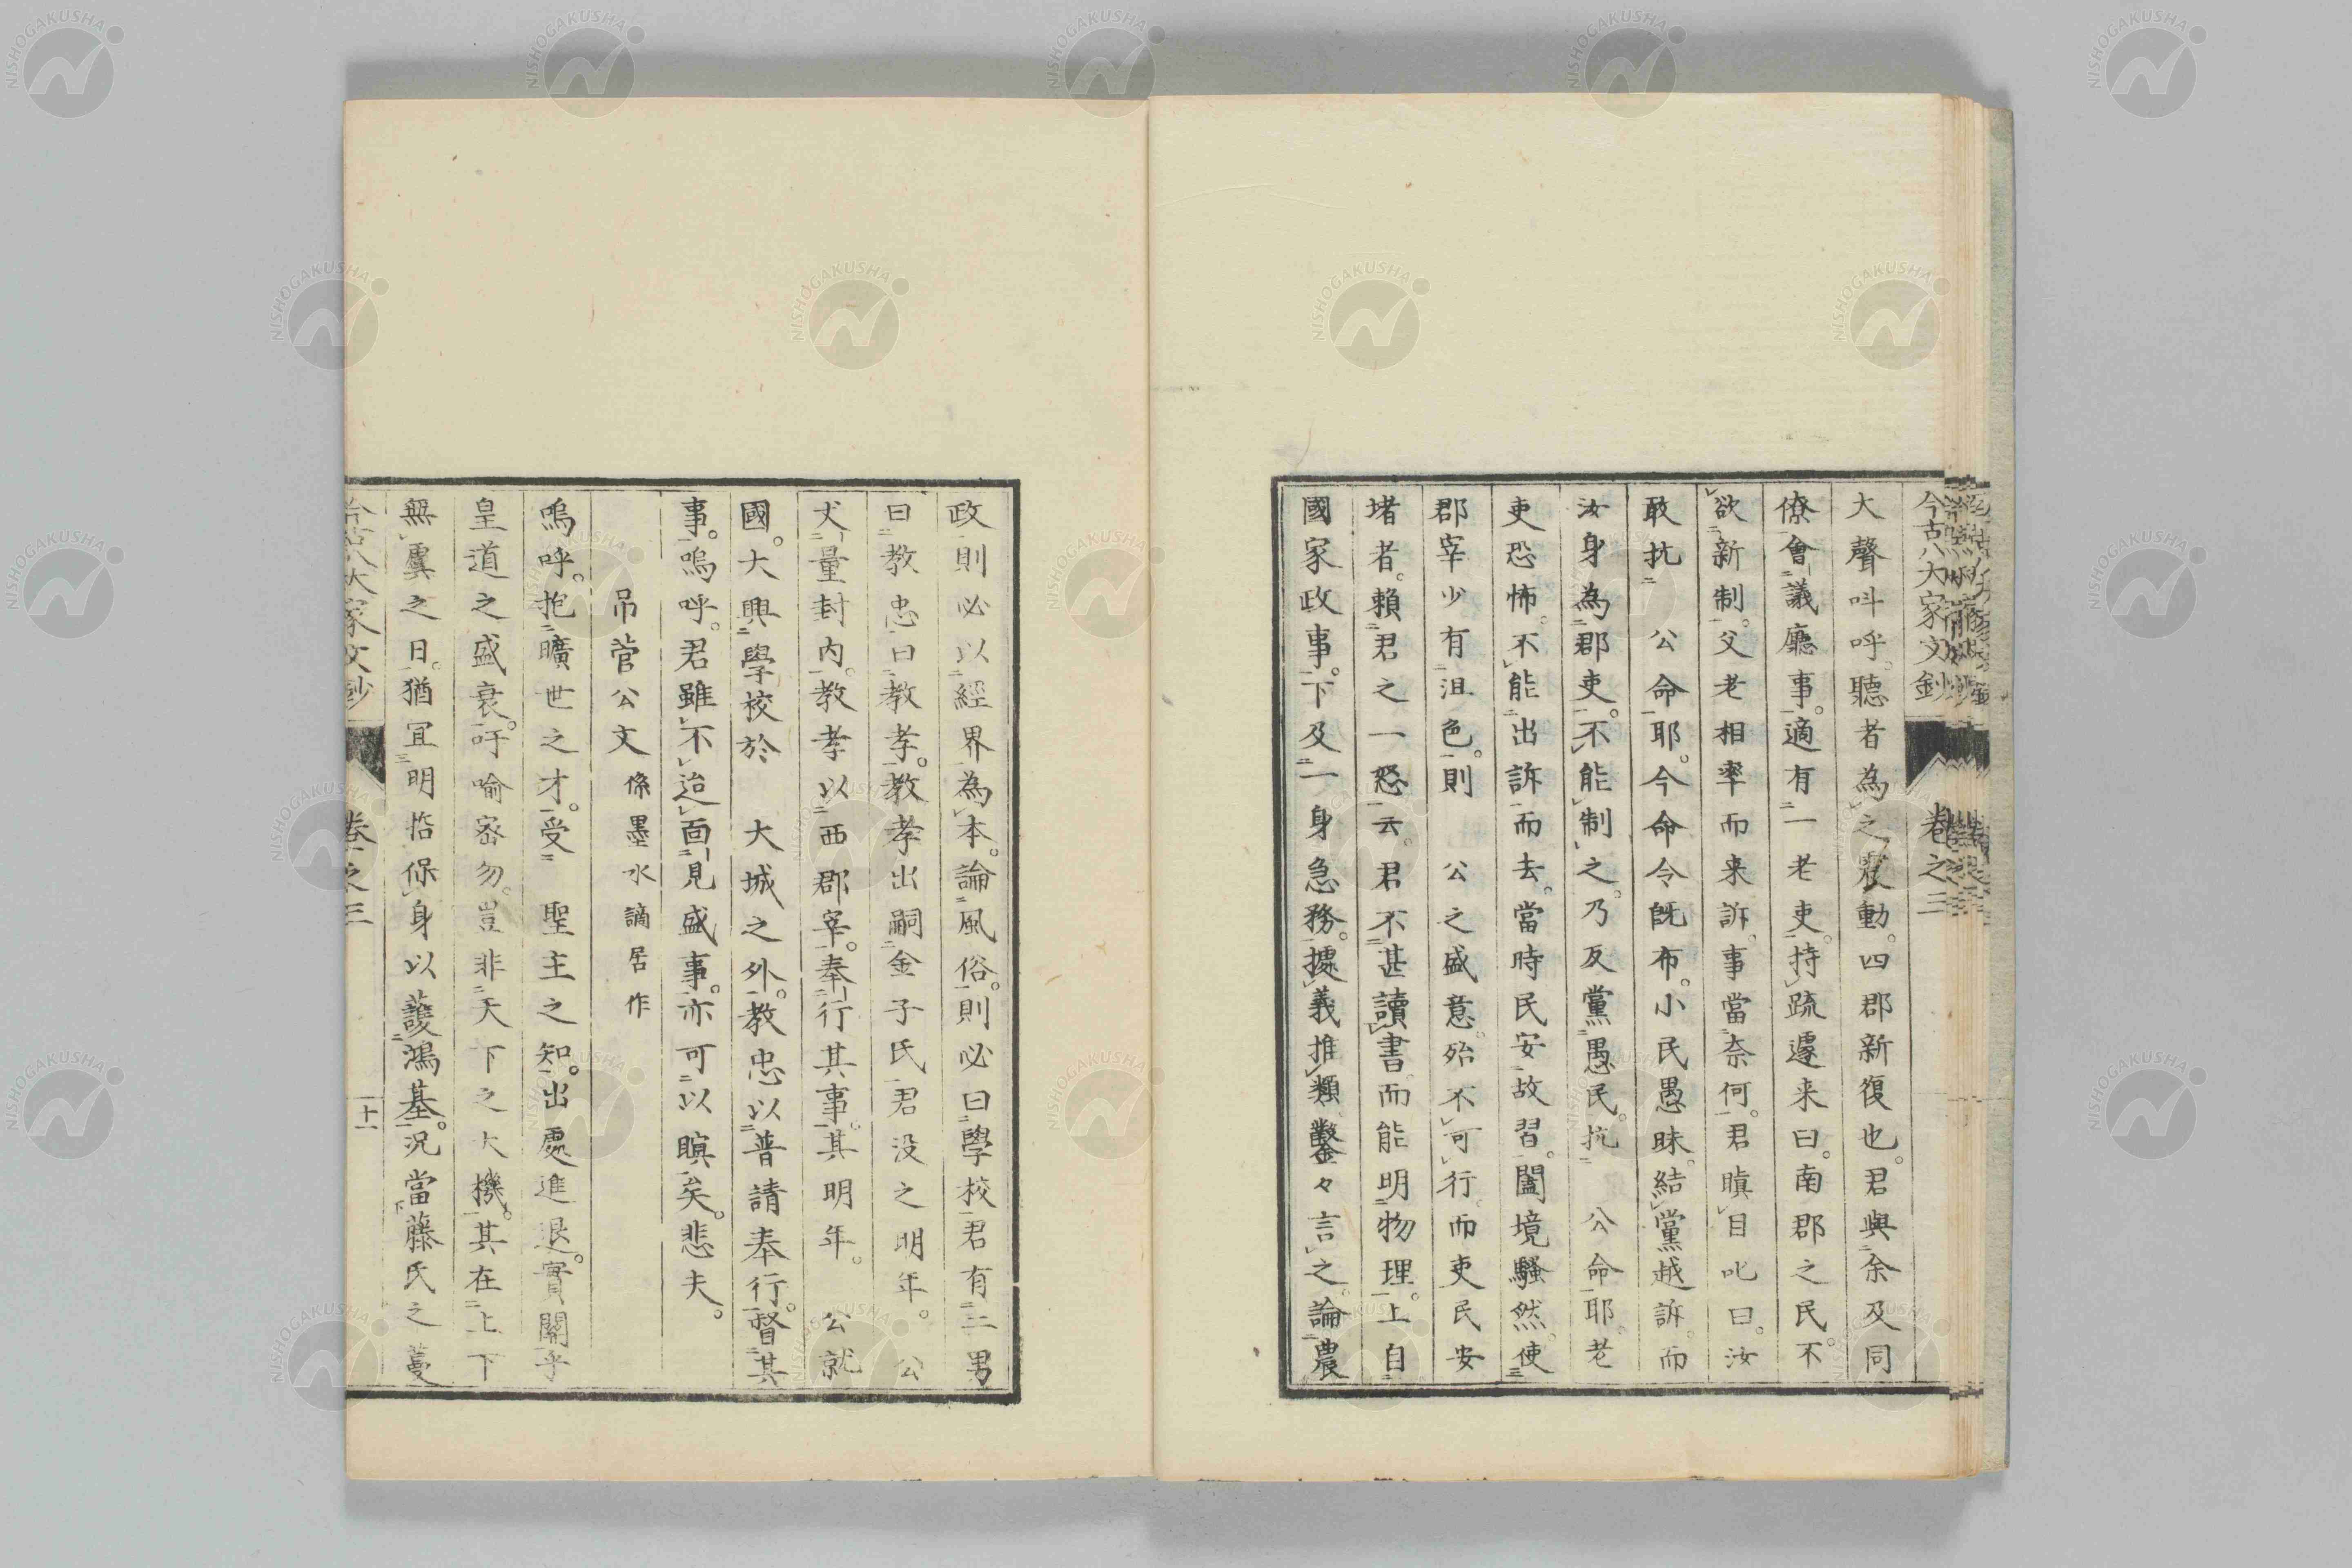 今古八大家文鈔 卷之三
大聲呌呼。聽者為之震動。四郡新復也。君與余及同
僚會議廳事。適有一老吏。持疏遽来曰。南郡之民。不
欲新制。父老相率而来訴。事當奈何。君瞋目叱曰。汝
敢抗 公命耶。今命令既布。小民愚昧。結黨越訴。而
汝身為郡吏。不能制之。乃反黨愚民。抗 公命耶。老
吏恐怖。不能出訴而去。當時民安故習。闔境騒然。使
郡宰少有沮色。則 公之盛意。殆不可行。而吏民安
堵者。賴君之一怒云。君不甚讀書。而能明物理。上自
國家政事。下及一身急務。據義推類。鑿々言之。論農
政則必以經界為本。論風俗。則必曰學校君有二男
曰教忠曰教孝。教孝出嗣金子氏君没之明年。公
丈量封内。教孝以西郡宰。奉行其事。其明年。 公就
國。大興學校於 大城之外。教忠以普請奉行。督其
事。嗚呼。君雖不迨面見盛事。亦可以瞑矣。悲夫。
吊菅公文 係墨水謫居作
嗚呼。抱曠世之才。受 聖主之知。出處進退。實關乎
皇道之盛衰。吁喻密勿。豈非天下之大機。其在上下
無虞之日。猶宜明哲保身以護鴻基。況當藤氏之蔓
今古八大家文鈔 卷之三 十一
NISHOGAKUSHA